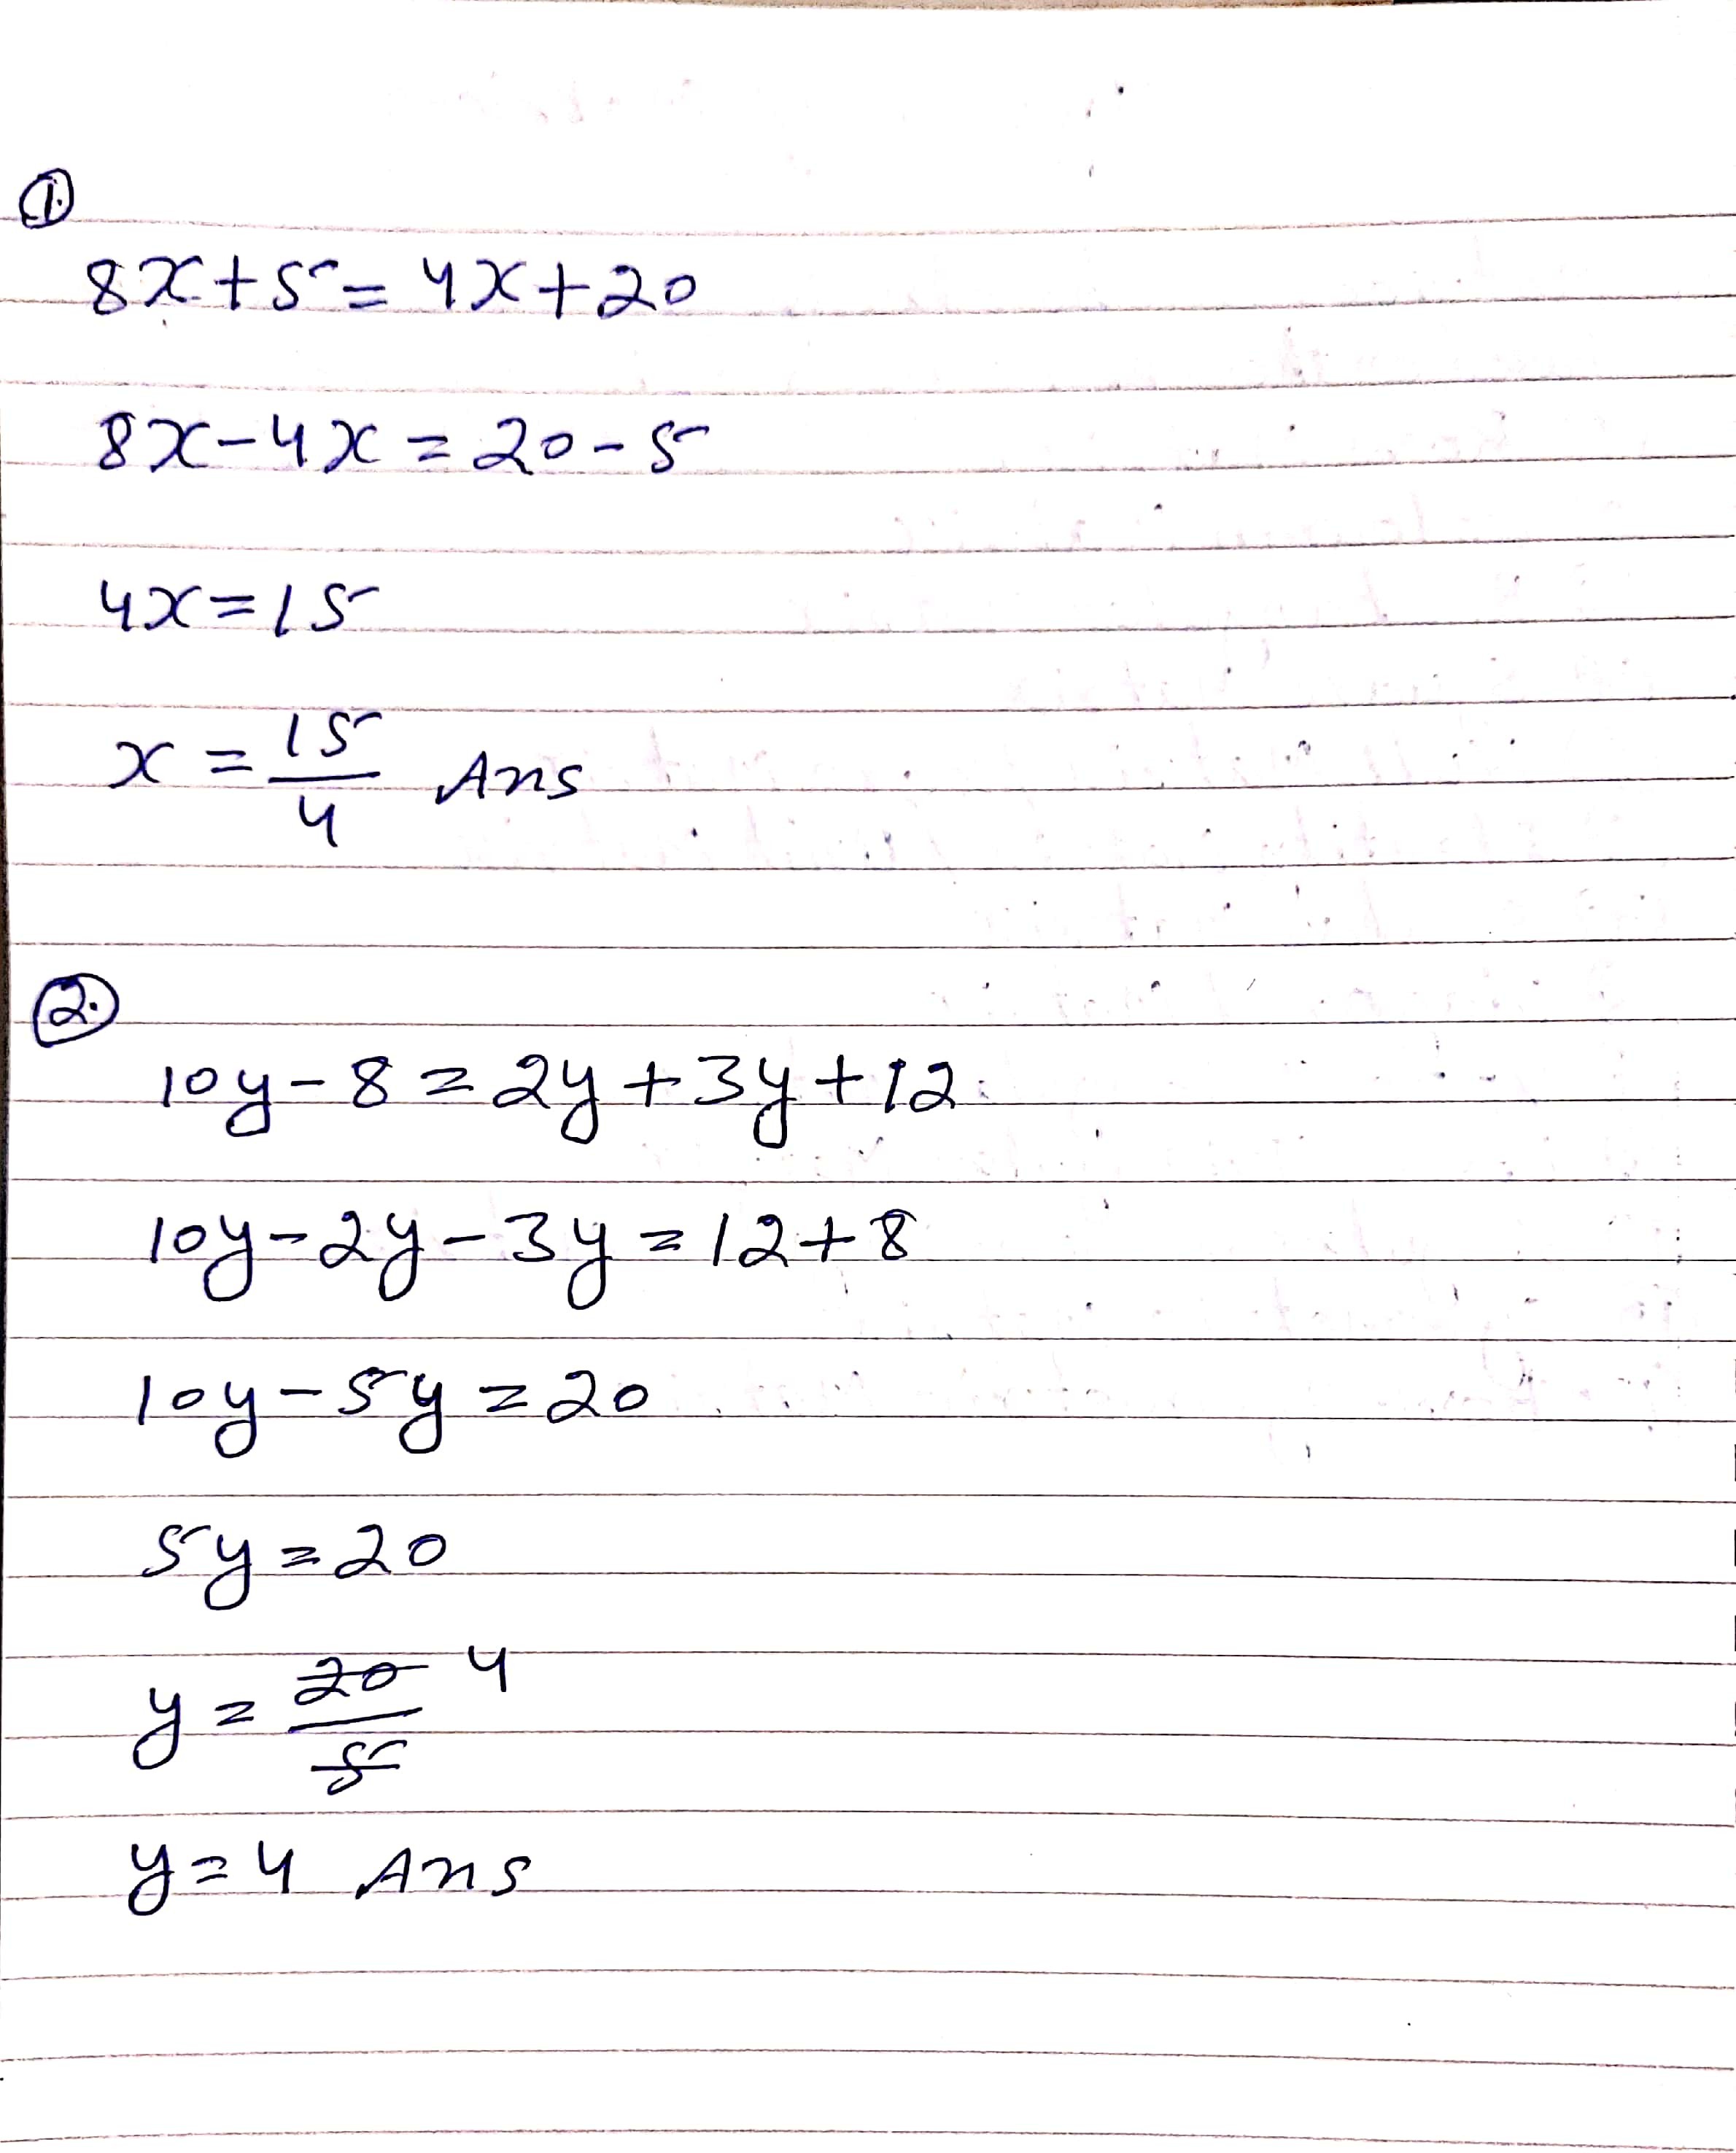 1.
8x+5=4x+20
8x-4x=20-5
4x=15
x=15/4 Ans
2.
10y-8=2y+3y+12
10y-2y-3y=12+8
10y-5y=20
5y=20
y=20/5 4
y=4 Ans